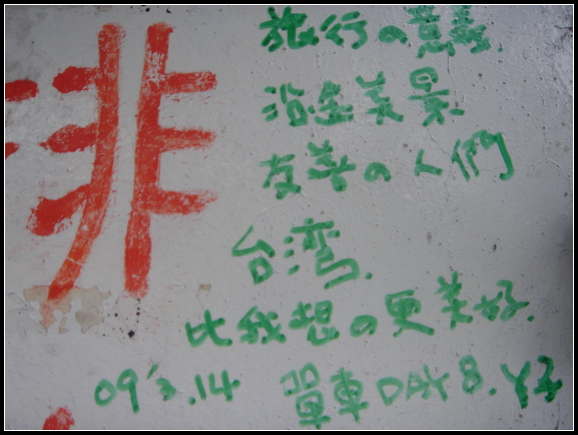 非
旅行の意義.
沿途美景
友善の人們
台湾.
比我想の更美好.
09'3.14 單車DAY 8.